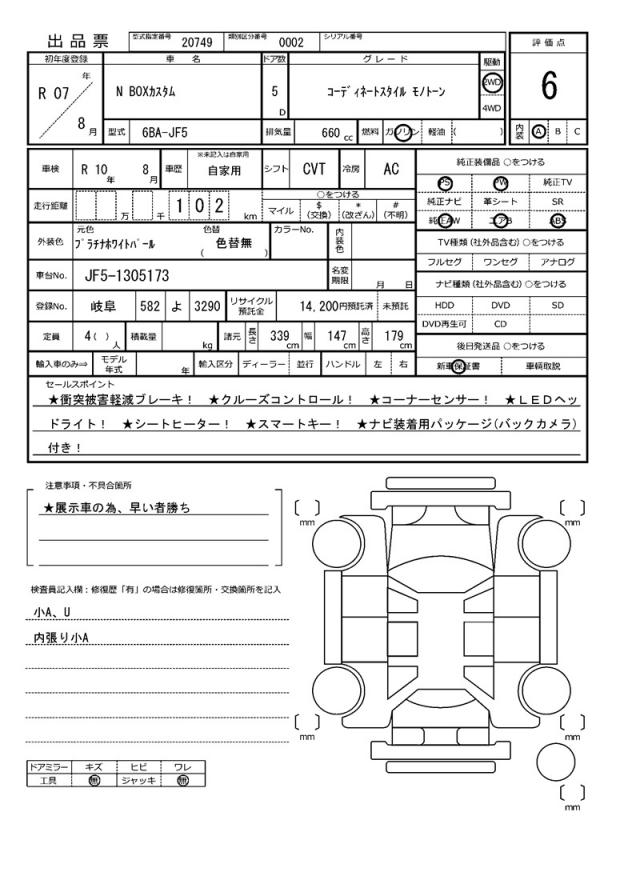 出品票 型式指定番号 20749 類別区分番号 0002 シリアル番号
評価点
6
内装 A B C
初年度登録 車名 ドア数 グレード 駆動
R 07 年 8 月 N BOXカスタム 5 D コーディネートスタイル モノトーン 2WD 4WD
型式 6BA-JF5 排気量 660 cc 燃料 ガソリン 軽油 ( )
車検 R 10 年 8 月 車歴 ※未記入は自家用 自家用 シフト CVT 冷房 AC
走行距離 万 千 1 0 2 km ○をつける マイル $ (交換) * (改ざん) # (不明)
外装色 元色 プラチナホワイトパール 色替 ( 色替無 ) カラーNo. 内装色
車台No. JF5-1305173 名変期限 月 日
登録No. 岐阜 582 よ 3290 リサイクル預託金 14,200円預託済 未預託
定員 4( ) 人 積載量 kg 諸元 長さ 339 cm 幅 147 cm 高さ 179 cm
輸入車のみ⇒ モデル年式 年 輸入区分 ディーラー 並行 ハンドル 左 右
純正装備品 ○をつける
PS PW 純正TV
純正ナビ 革シート SR
純正AW エアB ABS
TV種類 (社外品含む) ○をつける
フルセグ ワンセグ アナログ
ナビ種類 (社外品含む) ○をつける
HDD DVD SD
DVD再生可 CD
後日発送品 ○をつける
新車保証書 車輌取説
セールスポイント
★衝突被害軽減ブレーキ! ★クルーズコントロール! ★コーナーセンサー! ★LEDヘッ
ドライト! ★シートヒーター! ★スマートキー! ★ナビ装着用パッケージ(バックカメラ)
付き!
注意事項・不具合箇所
★展示車の為、早い者勝ち
検査員記入欄:修復歴「有」の場合は修復箇所・交換箇所を記入
小A、U
内張り小A
ドアミラー キズ ヒビ ワレ
工具 無 ジャッキ 無
[ ] mm
[ ] mm
[ ] mm
[ ] mm
[ ] mm